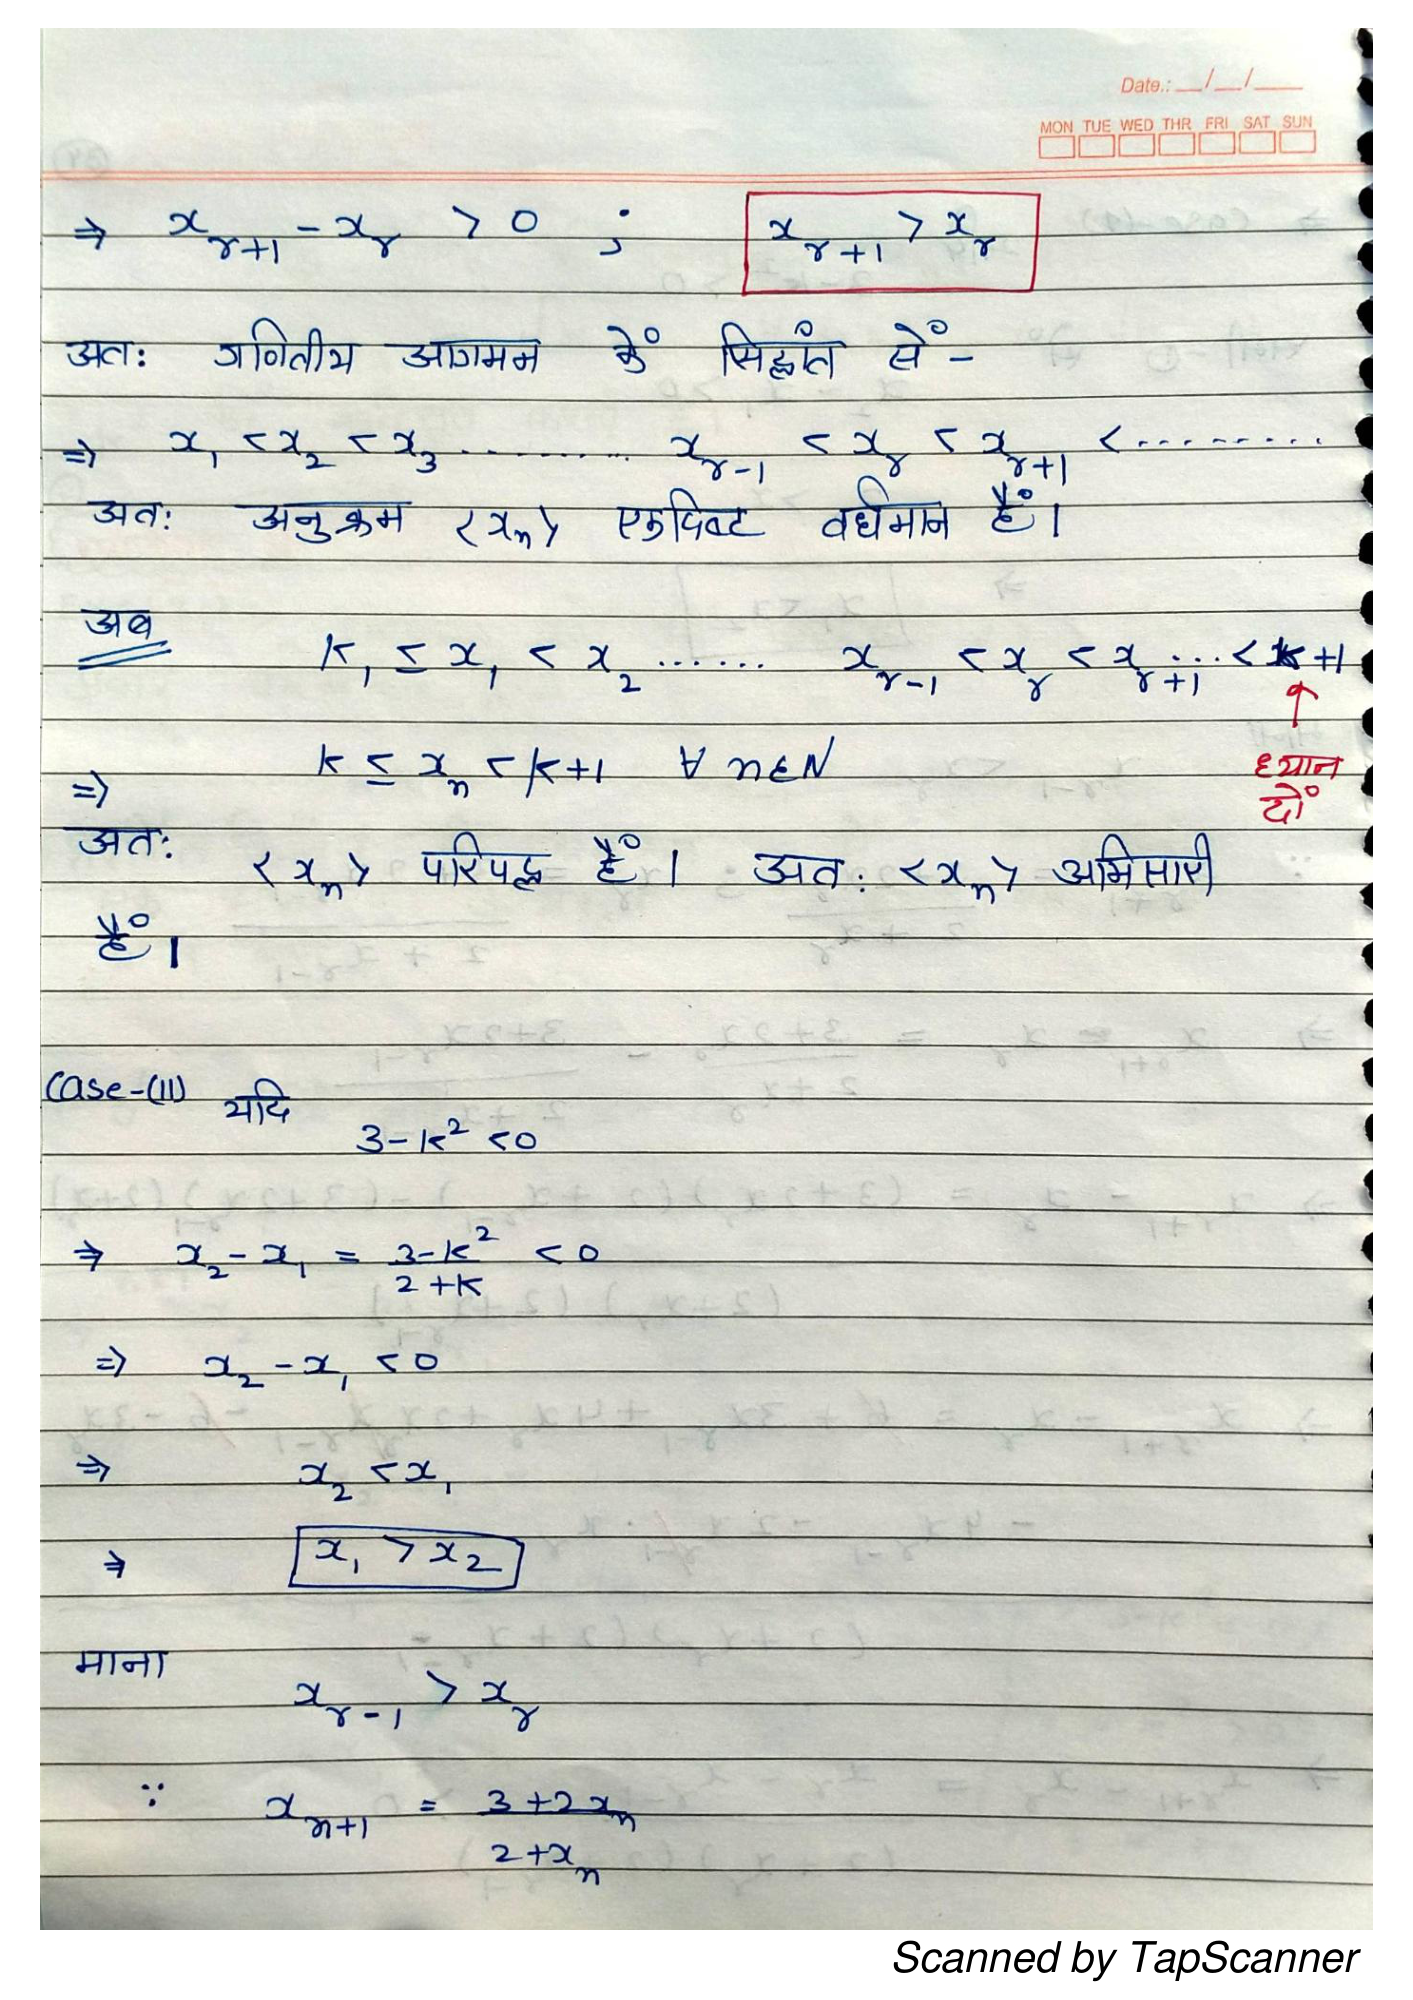 Date.: __/__/____
MON TUE WED THR FRI SAT SUN
⇒ x_{r+1} - x_r > 0 ; x_{r+1} > x_r
अतः गणितीय आगमन कें सिद्धांत सें -
⇒ x_1 < x_2 < x_3 .......... x_{r-1} < x_r < x_{r+1} < .........
अतः अनुक्रम <x_n> एकदिष्ट वर्धमान हैं।
अब
k_1 ≤ x_1 < x_2 ...... x_{r-1} < x_r < x_{r+1} ... < k+1
↑
⇒ k ≤ x_n < k+1 ∀ n∈N
ध्यान
दों
अतः <x_n> परिबद्ध हैं। अतः <x_n> अभिसारी
हैं।
Case-(II) यदि
3-k² <0
⇒ x_2 - x_1 = \frac{3-k²}{2+k} < 0
⇒ x_2 - x_1 < 0
⇒ x_2 < x_1
⇒ x_1 > x_2
माना
x_{r-1} > x_r
∵ x_{n+1} = \frac{3+2x_n}{2+x_n}
Scanned by TapScanner